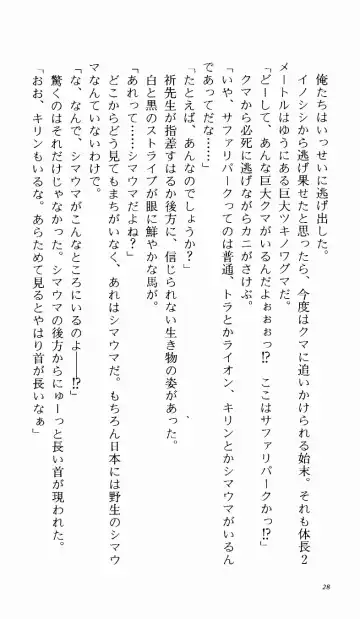 俺たちはいっせいに逃げ出した。
イノシシから逃げ果せたと思ったら、今度はクマに追いかけられる始末。それも体長２
メートルはゆうにある巨大ツキノワグマだ。
「どーして、あんな巨大クマがいるんだよぉぉぉっ!?　ここはサファリパークかっ!?」
クマから必死に逃げながらカニがさけぶ。
「いや、サファリパークってのは普通、トラとかライオン、キリンとかシマウマがいるん
であってだな……」
「たとえば、あんなのでしょうか？」
祈先生が指差すはるか後方に、信じられない生き物の姿があった。
白と黒のストライプが眼に鮮やかな馬が。
「あれって……シマウマだよね？」
どこからどう見てもまちがいなく、あれはシマウマだ。もちろん日本には野生のシマウ
マなんていないわけで。
「な、なんで、シマウマがこんなところにいるのよ――!?」
驚くのはそれだけじゃなかった。シマウマの後方からにゅーっと長い首が現われた。
「おお、キリンもいるな。あらためて見るとやはり首が長いなぁ」
28